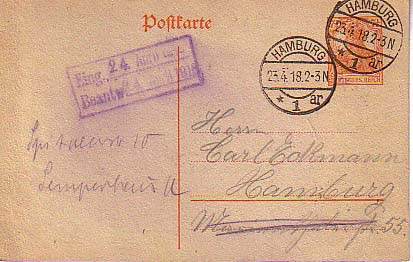 Postkarte
HAMBURG
23.4.18.2-3N
* 1 ar
HAMBURG
23.4.18.2-3N
* 1 ar
Eing. 24
Beantw.
Spitalerstr 10
Semperhaus A
Herrn
Carl Eckmann
Hamburg
55.